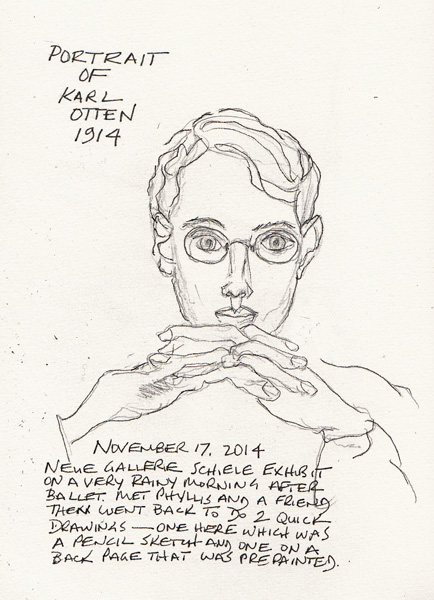 PORTRAIT
OF
KARL
OTTEN
1914
NOVEMBER 17, 2014
NEUE GALLERIE SCHIELE EXHIBIT
ON A VERY RAINY MORNING AFTER
BALLET. MET PHYLLIS AND A FRIEND
THEN WENT BACK TO DO 2 QUICK
DRAWINGS — ONE HERE WHICH WAS
A PENCIL SKETCH AND ONE ON A
BACK PAGE THAT WAS PREPAINTED.